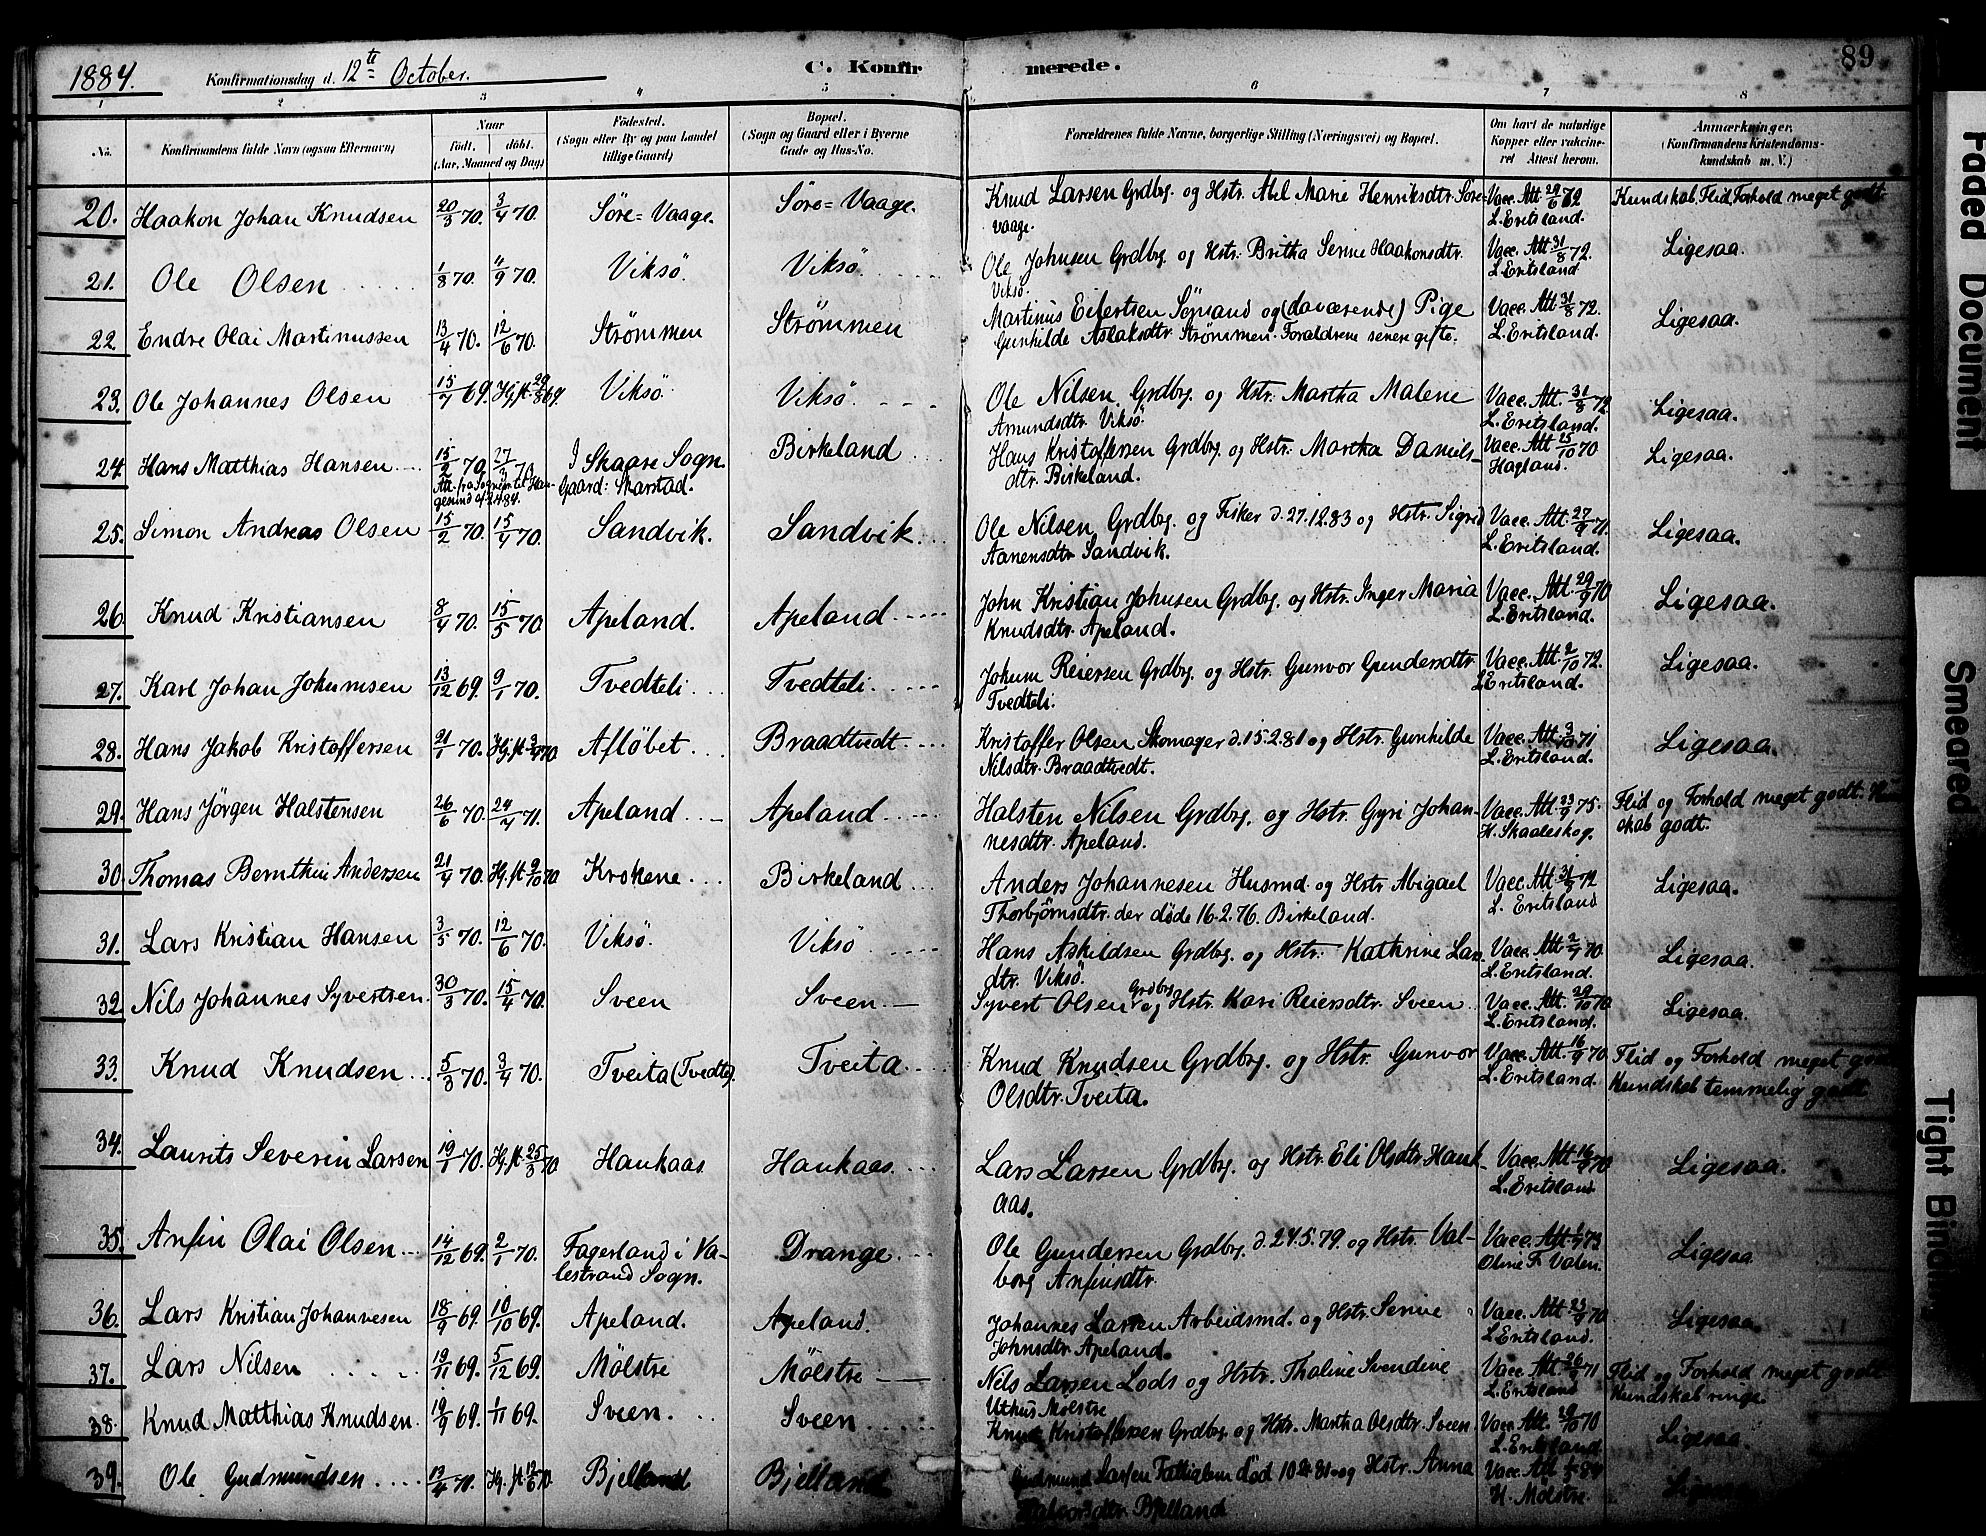 1884. Konfirmationsdag d. 12te October. C. Konfirmerede. 89
1 2 3 4 5 6 7 8
No. Konfirmandens fulde Navn (ogsaa Efternavn) Naar født. døbt. (Aar, Maaned og Dag) Fødested. (Sogn eller By og paa Landet tillige Gaard) Bopæl. (Sogn og Gaard eller i Byerne Gade og Hus-No. Forældrenes fulde Navne, borgerlige Stilling (Næringsvei) og Bopæl. Om havt de naturlige Kopper eller vakcineret Attest herom. Anmærkninger. (Konfirmandens Kristendomskundskab m. V.)
20. Haakon Johan Knudsen 20/3 70. 3/4 70. Söre=Vaage. Söre=Vaage. Knud Larsen Grdbg. og Hstr. Abel Marie Henriksdtr. Söre=
vaage. Vacc. Att. 29/6 72 L. Eritsland. Kundskab, Flid, Forhold meget godt.
21. Ole Olsen 1/8 70. 4/9 70. Viksö Viksö Ole Johnsen Grdbg. og Hstr. Britha Serine Haakonsdtr.
Viksö. Vacc. Att. 31/8 72. L. Eritsland Ligesaa.
22. Endre Olai Martinussen 13/4 70. 12/6 70. Strömmen Strömmen Martinus Eifertsen Sömand og (daværende) Pige
Gunhilde Aslaksdtr. Strömmen. Forældrene senere gifte. Vacc. Att. 31/8 72. L. Eritsland. Ligesaa.
23. Ole Johannes Olsen 15/7 69. Hj. dt. 29/8 69. Viksö. Viksö. Ole Nilsen Grdbg. og Hstr. Martha Malene
Amundsdtr. Viksö. Vacc. Att. 31/8 72 L. Eritsland. Ligesaa.
24. Hans Matthias Hansen 15/2 70. 27/3 70. I Skaare Sogn. Birkeland Hans Kristoffersen Grdbg. og Hstr. Martha Daniels-
Gaard: Skarstad. dtr. Birkeland. Vacc. Att 25/10 70 Hagland. Ligesaa.
25. Simon Andreas Olsen 15/2 70. 15/4 70. Sandvik. Sandvik. Ole Nilsen Grdbg. og Fisker d. 27.12.83 og Hstr. Sigrid
Aanensdtr. Sandvik. Vacc. Att. 27/9 71. L. Eritsland. Ligesaa.
26. Knud Kristiansen 8/4 70. 15/5 70. Apeland. Apeland. John Kristian Johnsen Grdbg. og Hstr. Inger Maria
Knudsdtr. Apeland. Vacc. Att. 29/9 70 L. Eritsland. Ligesaa.
27. Karl Johan Jokumsen 13/12 69. 9/1 70. Tvedteli. Tvedteli. Jokum Reiersen Grdbg. og Hstr. Gunvor Gundersdtr.
Tvedteli. Vacc. Att. 2/10 72. L. Eritsland. Ligesaa.
28. Hans Jakob Kristoffersen 21/1 70. Aflöbet. Braadtvedt. Kristoffer Olsen Skomager d. 15.2.81 og Hstr. Gunhilde
Nilsdtr. Braadtvedt. Vacc. Att. 3/10 71 L. Eritsland. Ligesaa.
29. Hans Jörgen Halstensen 26/6 70. 24/4 71. Apeland. Apeland. Halsten Nilsen Grdbg. og Hstr. Gyri Johan-
nesdtr. Apeland. Vacc. Att. 23/9 75. H. Skaaleskog. Flid og Forhold meget godt. Kund
skab godt.
30. Thomas Andersen 21/4 70. Hj. dt. 9/10 70 Krokene. Birkeland Anders Johannesen Husmd. og Hstr. Abigael
Thorbjörnsdtr. der döde 16.2.76. Birkeland. Vacc. Att. L. Eritsland Ligesaa.
31. Lars Kristian Hansen 3/5 70. 12/6 70. Viksö. Viksö Hans Askildsen Grdbg. og Hstr. Kathrine Lars-
dtr. Viksö. Vacc. Att. L. Eritsland. Ligesaa.
32. Nils Johannes Syvertsen 30/3 70. 15/4 70. Sveen Sveen. Syvert Olsen Grdbg. og Hstr. Kari Reiersdtr. Sveen Vacc. Att. 29/10 70 L. Eritsland. Ligesaa.
33. Knud Knudsen 5/3 70. 3/4 70. Tveita (Tvedte). Tveita Knud Knudsen Grdbg. og Hstr. Gunvor
Olsdtr. Tveita. Vacc. Att. 16/9 70 L. Eritsland. Flid og Forhold meget godt
Kundskab temmelig godt
34. Laurits Severin Larsen 19/1 70. Hj. dt. 25/3 70 Haukaas Haukaas. Lars Larsen Grdbg. og Hstr. Eli Olsdtr. Hauk-
aas. Vacc. Att 16/9 70 L. Eritsland Ligesaa.
35. Anfin Olai Olsen 14/12 69. 2/1 70. Fagerland i Va-
lestrand Sogn. Drange. Ole Gundersen Grdbg. d. 24.5.79. og Hstr. Val-
borg Anfinsdtr. Vacc. Att. Oline F. Valen. Ligesaa
36. Lars Kristian Johannesen 18/9 69. 10/10 69. Apeland. Apeland. Johannes Larsen Arbeidsmd. og Hstr. Serine
Johnsdtr. Apeland. Vacc. Att 23/9 70 L. Eritsland. Ligesaa.
37. Lars Nilsen 19/11 69. 5/12 69. Mölstre Mölstre Nils Larsen Lods og Hstr. Thaline Svendine
Uthus Mölstre Vacc. Att. 26/9 71 L. Eritsland Flid og Forhold meget godt
Kundskab ringe.
38. Knud Matthias Knudsen. 19/9 69. 1/11 69. Sveen. Sveen Knud Kristoffersen Grdbg. og Hstr. Martha Olsdtr. Sveen. Vacc. Att. 29/10 70 L. Eritsland. Ligesaa.
39. Ole Gudmundsen 13/4 70. Bjelland Bjelland Gudmund Larsen og Hstr. Anna
Halvorsdtr. Bjelland Vacc. Att. H. Mölstre. Ligesaa
Faded Document
Smeared
Tight Binding